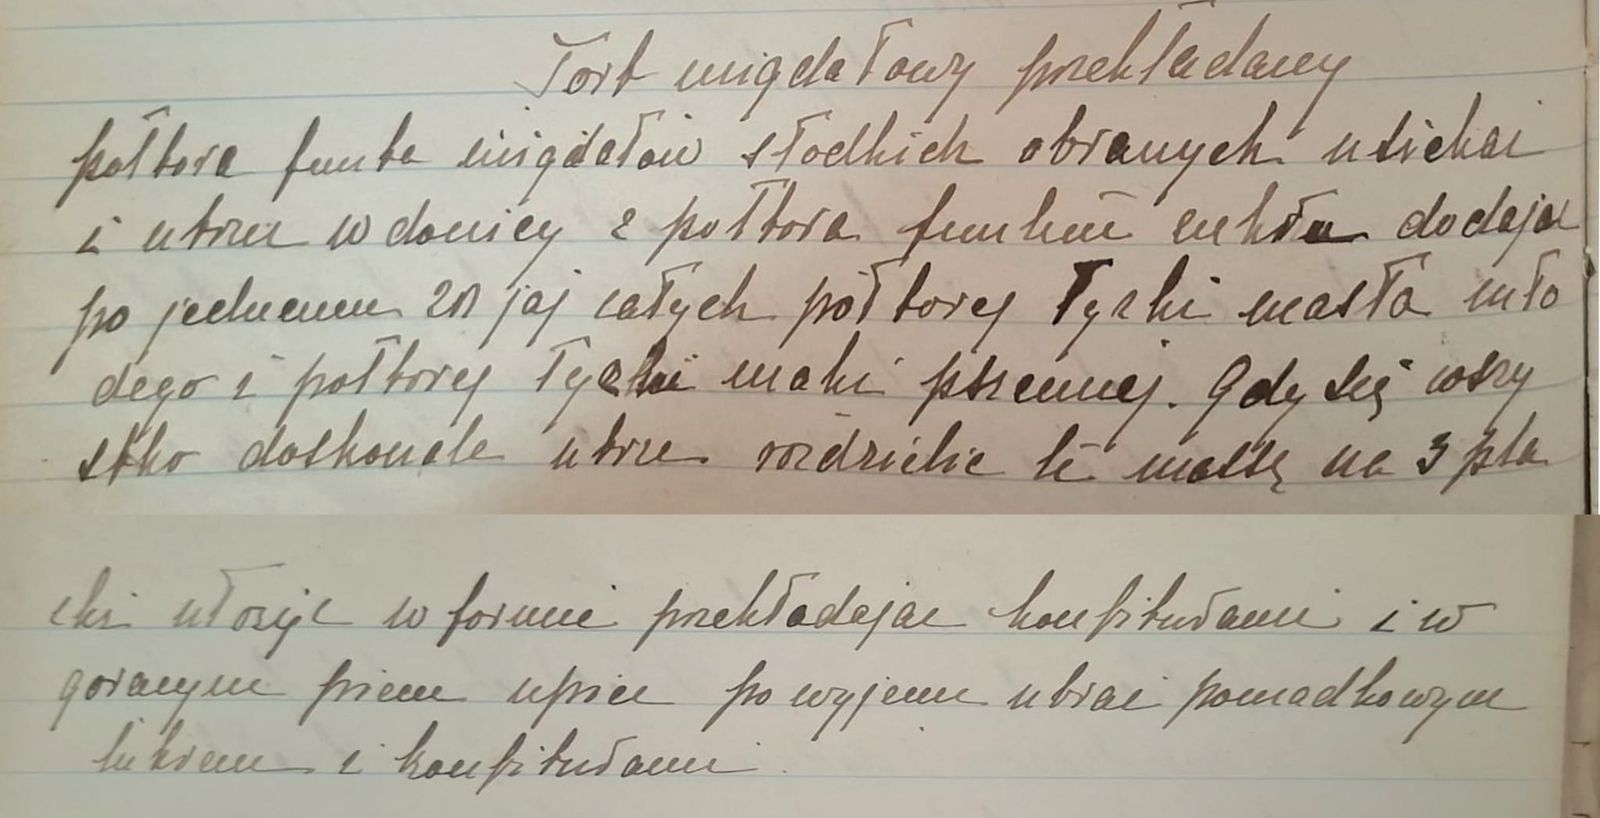 Tort migdałowy przekładany
półtora funta migdałów słodkich obranych usiekać
i utrzeć w donicy z półtora funtem cukru dodając
po jednemu 20 jaj całych półtorej łyżki masła mło
dego i półtorej łyżki mąki pszennej. Gdy się wszy
stko doskonale utrze rozdzielić tę masę na 3 pla
cki ułożyć w formie przekładając konfiturami i w
gorącym piecu upiec po wyjęciu ubrać pomadkowym
lukrem i konfiturami.